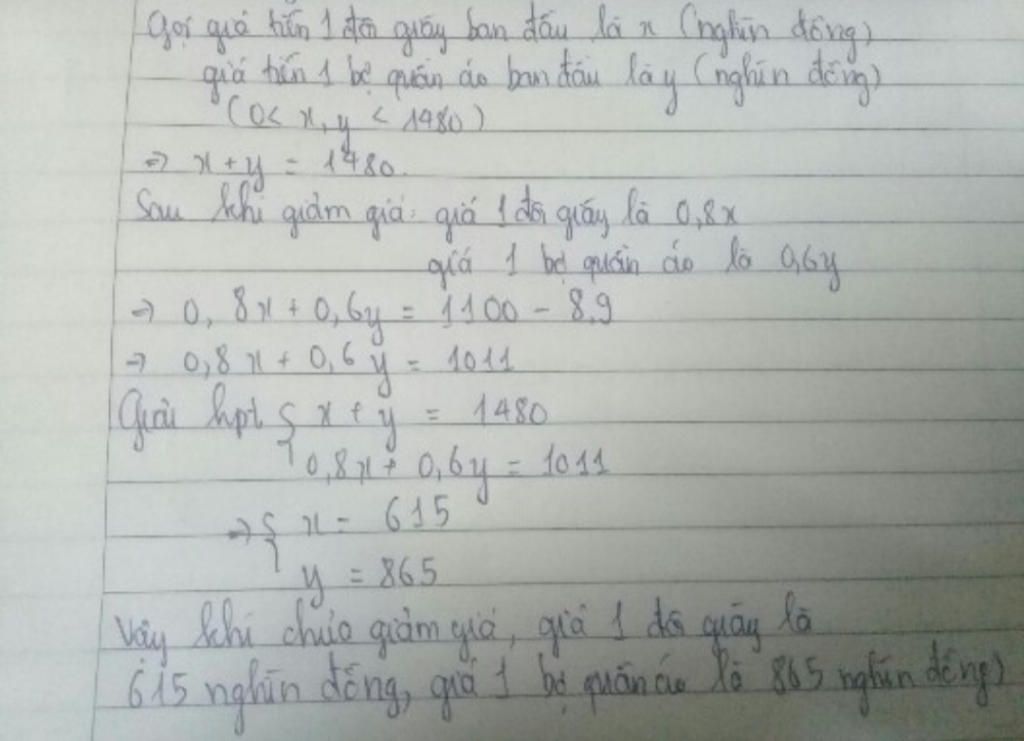 Gọi giá tiền 1 đôi giầy ban đầu là x (nghìn đồng)
giá tiền 1 bộ quần áo ban đầu là y (nghìn đồng)
(0 < x, y < 1480)
⇒ x + y = 1480.
Sau khi giảm giá: giá 1 đôi giầy là 0,8x
giá 1 bộ quần áo là 0,6y
⇒ 0,8x + 0,6y = 1100 - 89
⇒ 0,8x + 0,6y = 1011
Giải hpt { x + y = 1480
0,8x + 0,6y = 1011
⇒ { x = 615
y = 865
Vậy khi chưa giảm giá, giá 1 đôi giầy là
615 nghìn đồng, giá 1 bộ quần áo là 865 nghìn đồng)